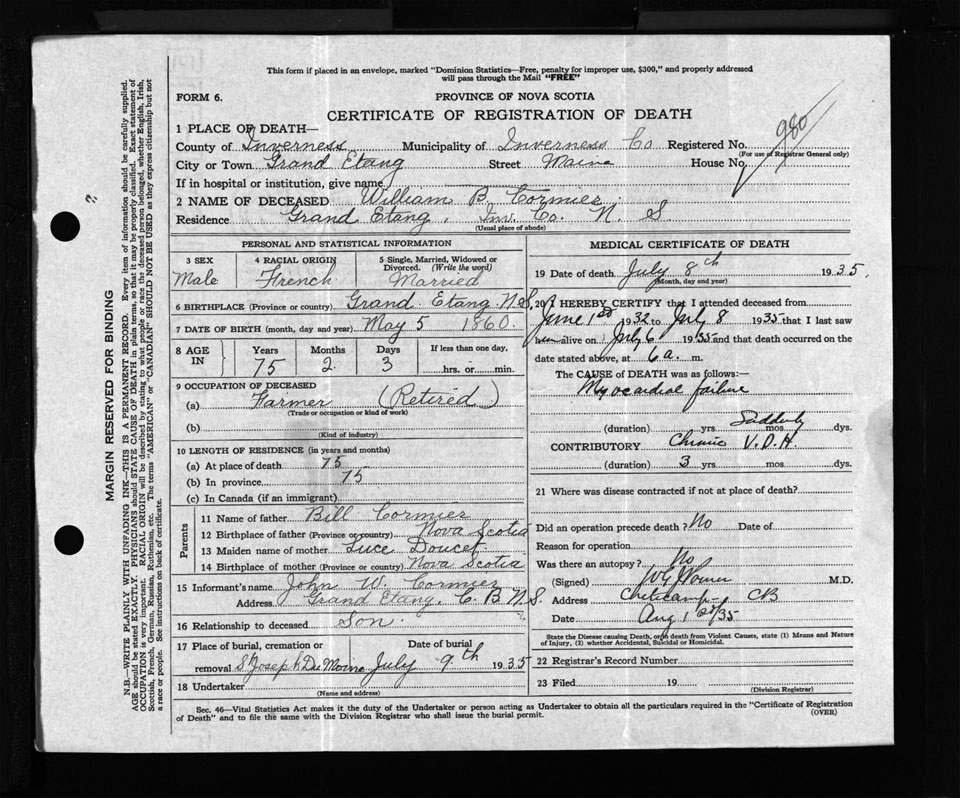 This form if placed in an envelope, marked "Dominion Statistics—Free, penalty for improper use, $300," and properly addressed
will pass through the Mail "FREE"
FORM 6.
PROVINCE OF NOVA SCOTIA
CERTIFICATE OF REGISTRATION OF DEATH
980
1 PLACE OF DEATH—
County of Inverness Municipality of Inverness Co Registered No.
(For use of Registrar General only)
City or Town Grand Etang Street Maine House No
If in hospital or institution, give name
2 NAME OF DECEASED William B. Cormier
Residence Grand Etang, Inv. Co. N. S
(Usual place of abode)
PERSONAL AND STATISTICAL INFORMATION
3 SEX
Male
4 RACIAL ORIGIN
French
5 Single, Married, Widowed or Divorced. (Write the word)
Married
6 BIRTHPLACE (Province or country) Grand Etang N.S.
7 DATE OF BIRTH (month, day and year) May 5 1860
8 AGE IN
Years Months Days If less than one day,
75 2 3 hrs. or min.
9 OCCUPATION OF DECEASED
(a) Farmer (Retired)
(Trade or occupation or kind of work)
(b)
(Kind of industry)
10 LENGTH OF RESIDENCE (in years and months)
(a) At place of death 75
(b) In province 75
(c) In Canada (if an immigrant)
Parents
11 Name of father Bill Cormier
12 Birthplace of father (Province or country) Nova Scotia
13 Maiden name of mother Luce Doucet
14 Birthplace of mother (Province or country) Nova Scotia
15 Informant's name John W. Cormier
Address Grand Etang, C. B. N. S.
16 Relationship to deceased Son.
17 Place of burial, cremation or Date of burial
removal St Joseph Du Moine July 9th 1935
18 Undertaker
(Name and address)
MEDICAL CERTIFICATE OF DEATH
19 Date of death July 8th 1935.
(Month, day and year)
20 I HEREBY CERTIFY that I attended deceased from
June 1st 1932 to July 8 1935 that I last saw
alive on July 6 1935 and that death occurred on the
date stated above, at 6 a. m.
The CAUSE OF DEATH was as follows:—
Myocardial failure
Suddenly
(duration) yrs mos dys.
CONTRIBUTORY Chronic V.D.H.
(duration) 3 yrs mos dys.
21 Where was disease contracted if not at place of death?
Did an operation precede death? No Date of
Reason for operation
Was there an autopsy? No
(Signed) M.D.
Address Cheticamp CB
Date Aug 1st/35
State the Disease causing Death, or in death from Violent Causes, state (1) Means and Nature
of Injury, (2) whether Accidental, Suicidal or Homicidal.
22 Registrar's Record Number
23 Filed 19
(Division Registrar)
Sec. 46—Vital Statistics Act makes it the duty of the Undertaker or person acting as Undertaker to obtain all the particulars required in the "Certificate of Registration
of Death" and to file the same with the Division Registrar who shall issue the burial permit.
(OVER)
MARGIN RESERVED FOR BINDING
N.B.—WRITE PLAINLY WITH UNFADING INK—THIS IS A PERMANENT RECORD. Every item of information should be carefully supplied.
AGE should be stated EXACTLY. PHYSICIANS should STATE CAUSE OF DEATH in plain terms, so that it may be properly classified. Exact statement of
OCCUPATION is very important. RACIAL ORIGIN will be described by stating to what people or race the deceased person belonged, whether English, Irish,
Scottish, French, German, Russian, Ruthenian, etc. The terms "AMERICAN" or "CANADIAN" SHOULD NOT BE USED as they express citizenship but not
a race or people. See instructions on back of certificate.